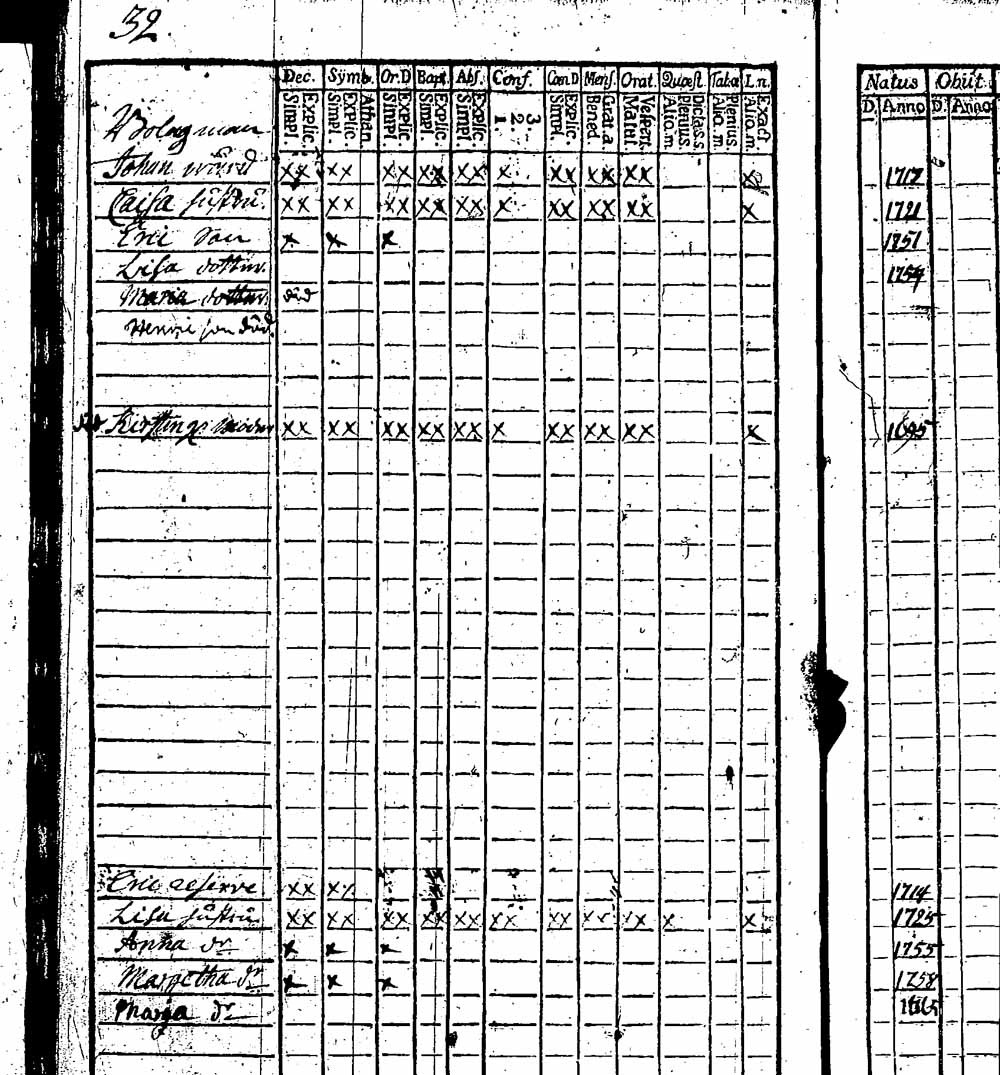 32.
Dec. Symb. Or.D Bapt. Abs. Conf. Can D Mens. Orat. Quæst. Taba L.n. Natus Obiit
Explic. Simpl. Athan. Explic. Simpl. Explic. Simpl. Explic. Simpl. Explic. Simpl. 3. 2. 1. Explic. Simpl. Grat.a Bened. Vespert. Matut. Dict.a s.s Plenius. Alio.m. Plenius. Alio.m. Exact Alio.m. D. Anno D. Anno
Johan xx xx xx xx xx x xx xx xx x 1717
Caisa hustru. xx xx xx xx xx x xx xx xx x 1721
Eric son x x x 1751
Lisa dotter. 1754
Maria dotter. död
Henric son död.
xx xx xx xx xx x xx xx xx x 1695
Eric reserve xx xx 1714
Lisa hustru xx xx xx xx xx xx xx xx xx x x 1725
Anna dr x x x 1755
Margetha dr x x x 1758
Marja dr